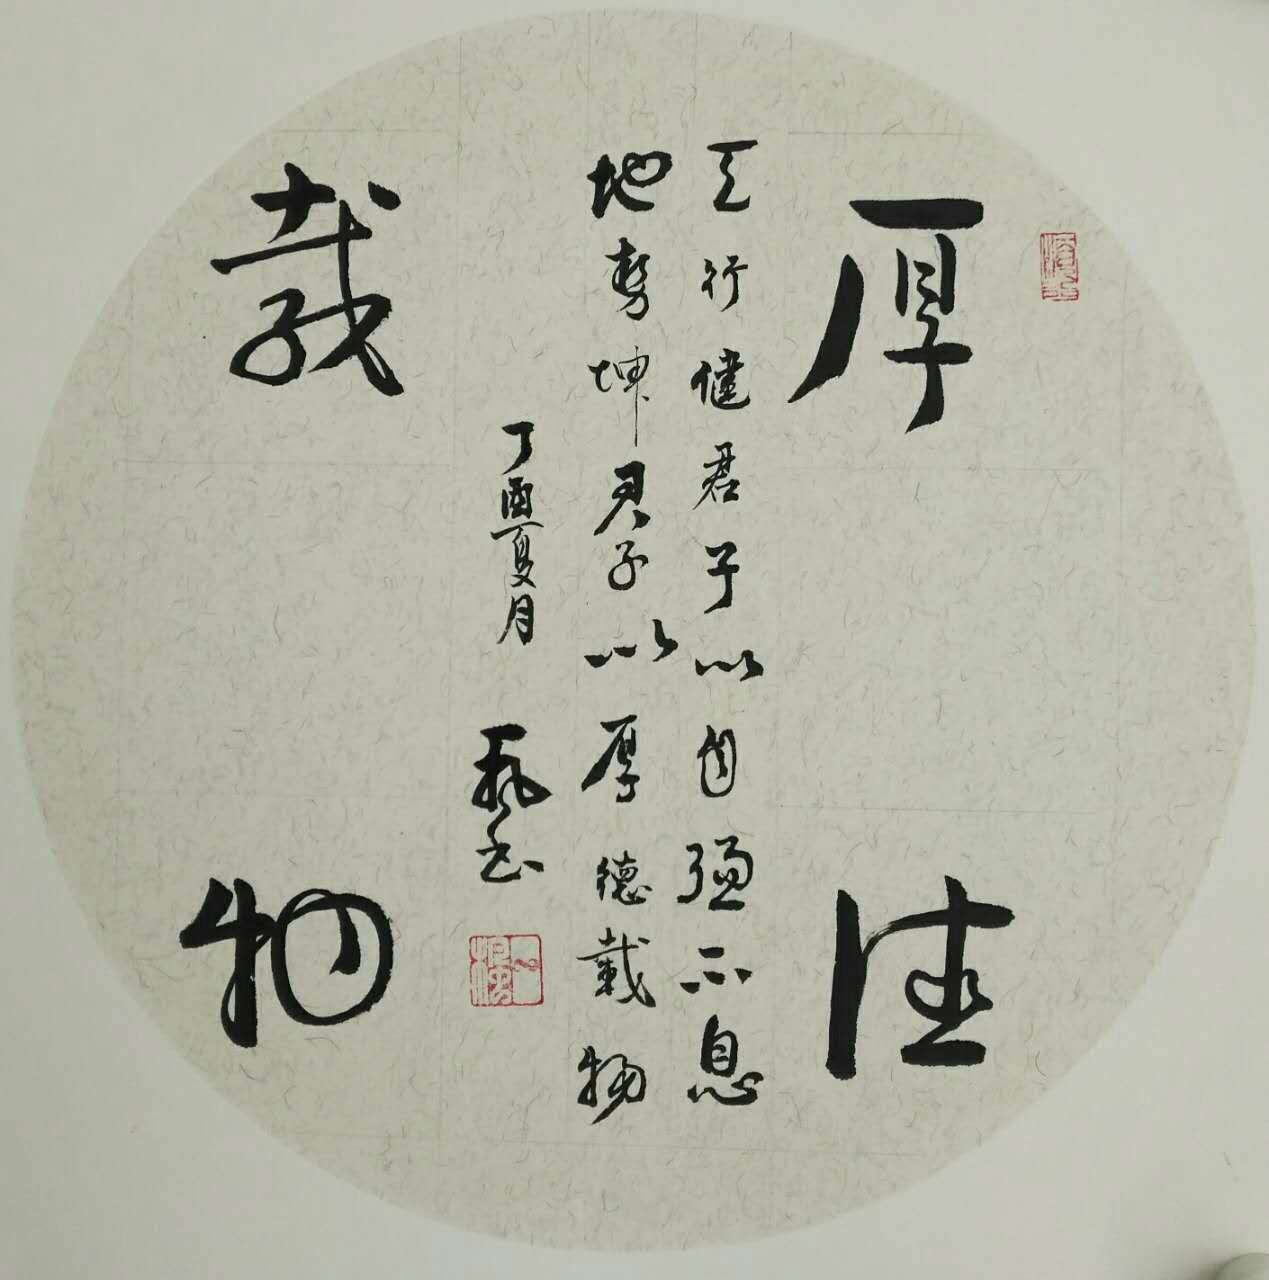 厚德
天行健君子以自强不息
地势坤君子以厚德载物
载物
丁酉夏月
书